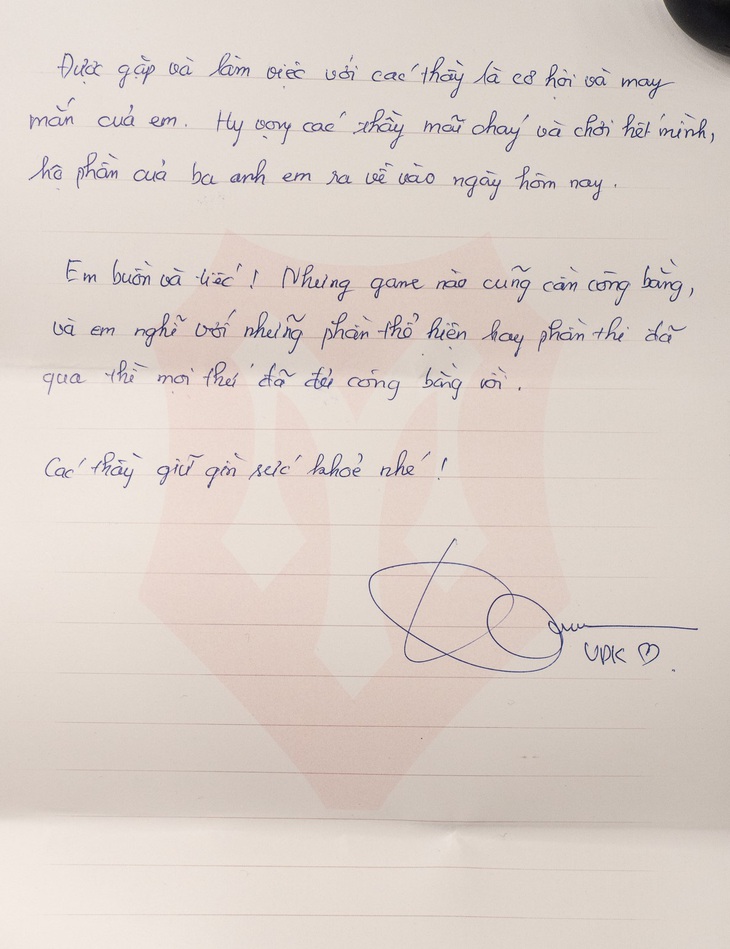 Được gặp và làm việc với các thầy là cơ hội và may
mắn của em. Hy vọng các thầy mãi cháy và chơi hết mình,
hộ phần của ba anh em ra về vào ngày hôm nay.
Em buồn và tiếc! Nhưng game nào cũng cần công bằng,
và em nghĩ với những phần thể hiện hay phần thi đã
qua thì mọi thứ đã đủ công bằng rồi.
Các thầy giữ gìn sức khoẻ nhé!
UDK ♡.